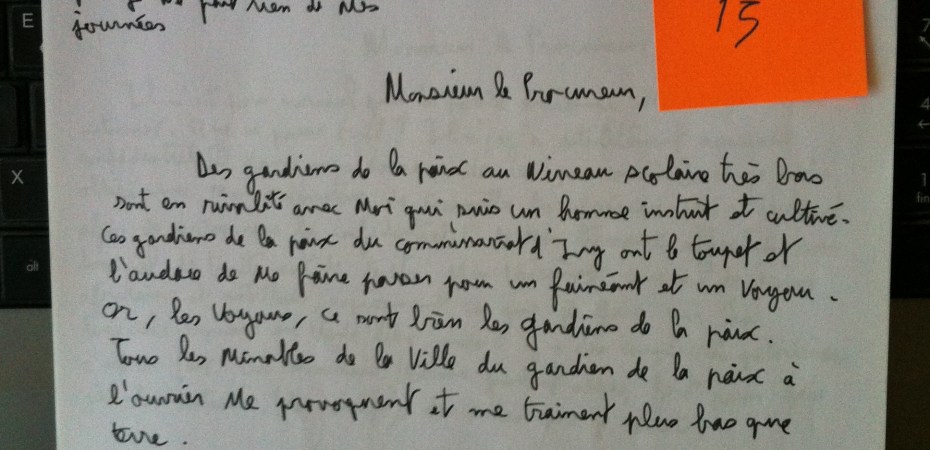 rien de mes
journées
15
Monsieur le Procureur,
Des gardiens de la paix au Niveau scolaire très bas
sont en rivalité avec Moi qui suis un homme instruit et cultivé.
Ces gardiens de la paix du commissariat d'Ivry ont le toupet et
l'audace de Me faire passer pour un fainéant et un Voyou.
Or, les Voyous, ce sont bien les gardiens de la paix.
Tous les Minables de la Ville du gardien de la paix à
l'ouvrier Me provoquent et me traiment plus bas que
terre.
E
X
alt